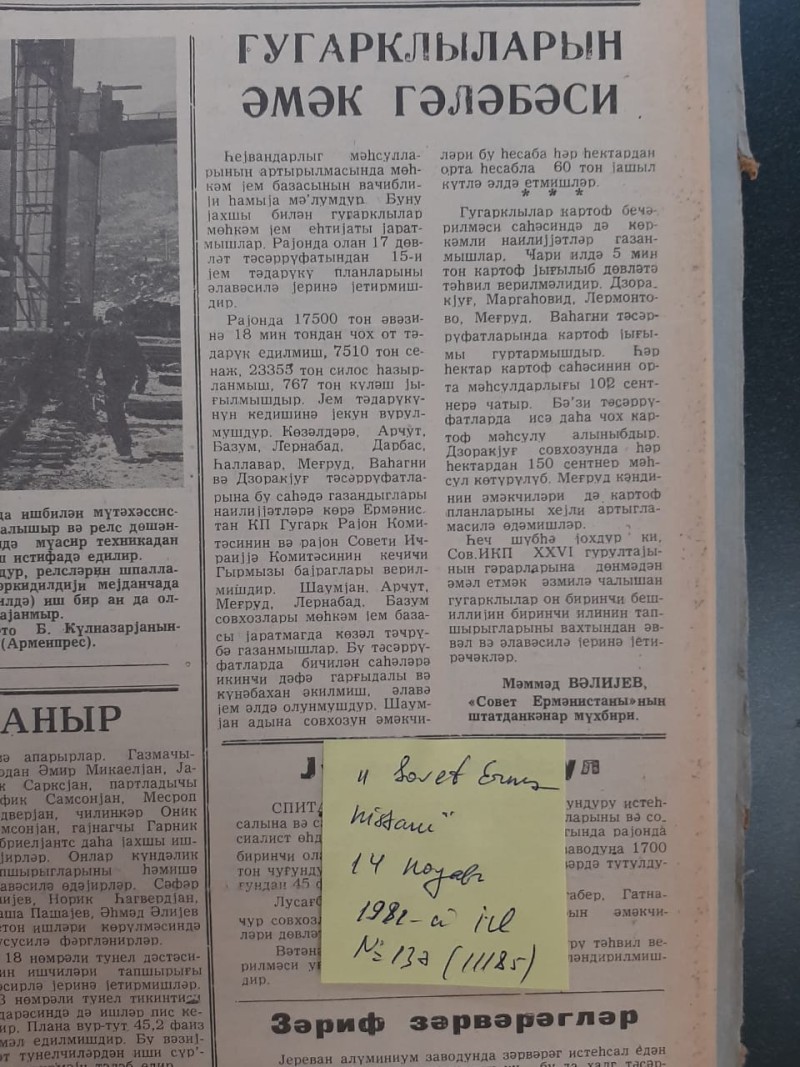 ГУГАРКЛЫЛАРЫН
ӘМӘК ГӘЛӘБӘСИ
Һејвандарлыг мәһсулла-
рынын артырылмасында мөһ-
кәм јем базасынын вачибли-
ји һамыја мә'лумдур. Буну
јахшы билән гугарклылар
мөһкәм јем еһтијаты јарат-
мышлар. Рајонда олан 17 дөв-
ләт тәсәррүфатындан 15-и
јем тәдарүкү планларыны
әлавәсилә јеринә јетирмиш-
дир.
Рајонда 17500 тон әвәзи-
нә 18 мин тондан чох от тә-
дарүк едилмиш, 7510 тон се-
наж, 23355 тон силос һазыр-
ланмыш, 767 тон күләш јы-
ғылмышдыр. Јем тәдарүкү-
нүн кедишинә јекун вурул-
мушдур. Көзәлдәрә, Арчут,
Базум, Лернабад, Дарбас,
Һаллавар, Меғруд, Ваһагни
вә Дзоракјуғ тәсәррүфатла-
рына бу саһәдә газандыглары
наилијјәтләрә көрә Ермәнис-
тан КП Гугарк Рајон Коми-
тәсинин вә рајон Совети Ич-
раијјә Комитәсинин кечичи
Гырмызы бајраглары верил-
мишдир. Шаумјан, Арчут,
Меғруд, Лернабад, Базум
совхозлары мөһкәм јем база-
сы јаратмагда көзәл тәчрү-
бә газанмышлар. Бу тәсәррү-
фатларда бичилән саһәләрә
икинчи дәфә гарғыдалы вә
күнәбахан әкилмиш, әлавә
јем әлдә олунмушдур. Шаум-
јан адына совхозун әмәкчи-
ләри бу һесаба һәр һектардан
орта һесабла 60 тон јашыл
күтлә әлдә етмишләр.
* * *
Гугарклылар картоф бечә-
рилмәси саһәсиндә дә көр-
кәмли наилијјәтләр газан-
мышлар. Чари илдә 5 мин
тон картоф јығылыб дөвләтә
тәһвил верилмәлидир. Дзора-
кјуғ, Маргаһовид, Лермонто-
во, Меғруд, Ваһагни тәсәр-
рүфатларында картоф јығы-
мы гуртармышдыр. Һәр
һектар картоф саһәсинин ор-
та мәһсулдарлығы 102 сент-
нерә чатыр. Бә'зи тәсәррү-
фатларда исә даһа чох кар-
тоф мәһсулу алыныбдыр.
Дзоракјуғ совхозунда һәр
һектардан 150 сентнер мәһ-
сул көтүрүлүб. Меғруд кәнди-
нин әмәкчиләри дә картоф
планларыны хејли артыгла-
масилә өдәмишләр.
Һеч шүбһә јохдур ки,
Сов.ИКП XXVI гурултајы-
нын гәрарларына дөнмәдән
әмәл етмәк әзмилә чалышан
гугарклылар он биринчи беш-
иллијин биринчи илинин тап-
шырыгларыны вахтындан әв-
вәл вә әлавәсилә јеринә јети-
рәчәкләр.
Мәммәд ВӘЛИЈЕВ,
«Совет Ермәнистаны»нын
штатданкәнар мүхбири.
да ишбилән мүтәхәссис-
алышыр вә релс дөшән-
дә муасир техникадан
ш истифадә едилир.
дур, релсләрин шпалла-
әркидилдији мејданчада
илдә) иш бир ан да ол-
ајанмыр.
то Б. Күлназарјанын-
(Арменпрес).
АНЫР
ә апарырлар. Газмачы-
рдан Әмир Микаелјан, Ја-
к Сарксјан, партладычы
фик Самсонјан, Месроп
дверјан, чилинкәр Оник
мсонјан, гајнагчы Гарник
бриелјантс даһа јахшы иш-
јирләр. Онлар күндәлик
пшырыгларыны һәмишә
авәсилә өдәјирләр. Сәфәр
лијев, Норик Һагвердјан,
аша Пашајев, Әһмәд Әлијев
етон ишләри көрүлмәсиндә
сусилә фәргләнирләр.
18 нөмрәли тунел дәстәси-
ин ишчиләри тапшырығы
әсирлә јеринә јетирмишләр.
3 нөмрәли тунел тикинтиси
дарәсиндә дә ишләр пис ке-
ир. Плана вур-тут 45,2 фаиз
әмәл едилмишдир. Бу вәзиј-
әт тунелчиләрдән иши сүр'-
СПИТА
салына вә с
сиалист өһд
биринчи ола
тон чуғунду
ғундан 45 ф
Лусағб
чур совхоз
ләри дөвлә
Вәтән
рилмәси уғ
дир.
ул
ундуру истеһ-
ларыны вә со-
ғында рајонда
заводуна 1700
әрдә тутулду-
габер, Гатна-
ын әмәкчи-
ру тәһвил ве-
ләндирилмиш-
"Sovet Ermə
nistanı"
14 noyabr
1981-ci il
№ 132 (11185)
Зәриф зәрвәрәгләр
Јереван алүминиум заводунда зәрвәрәг истеһсал едән